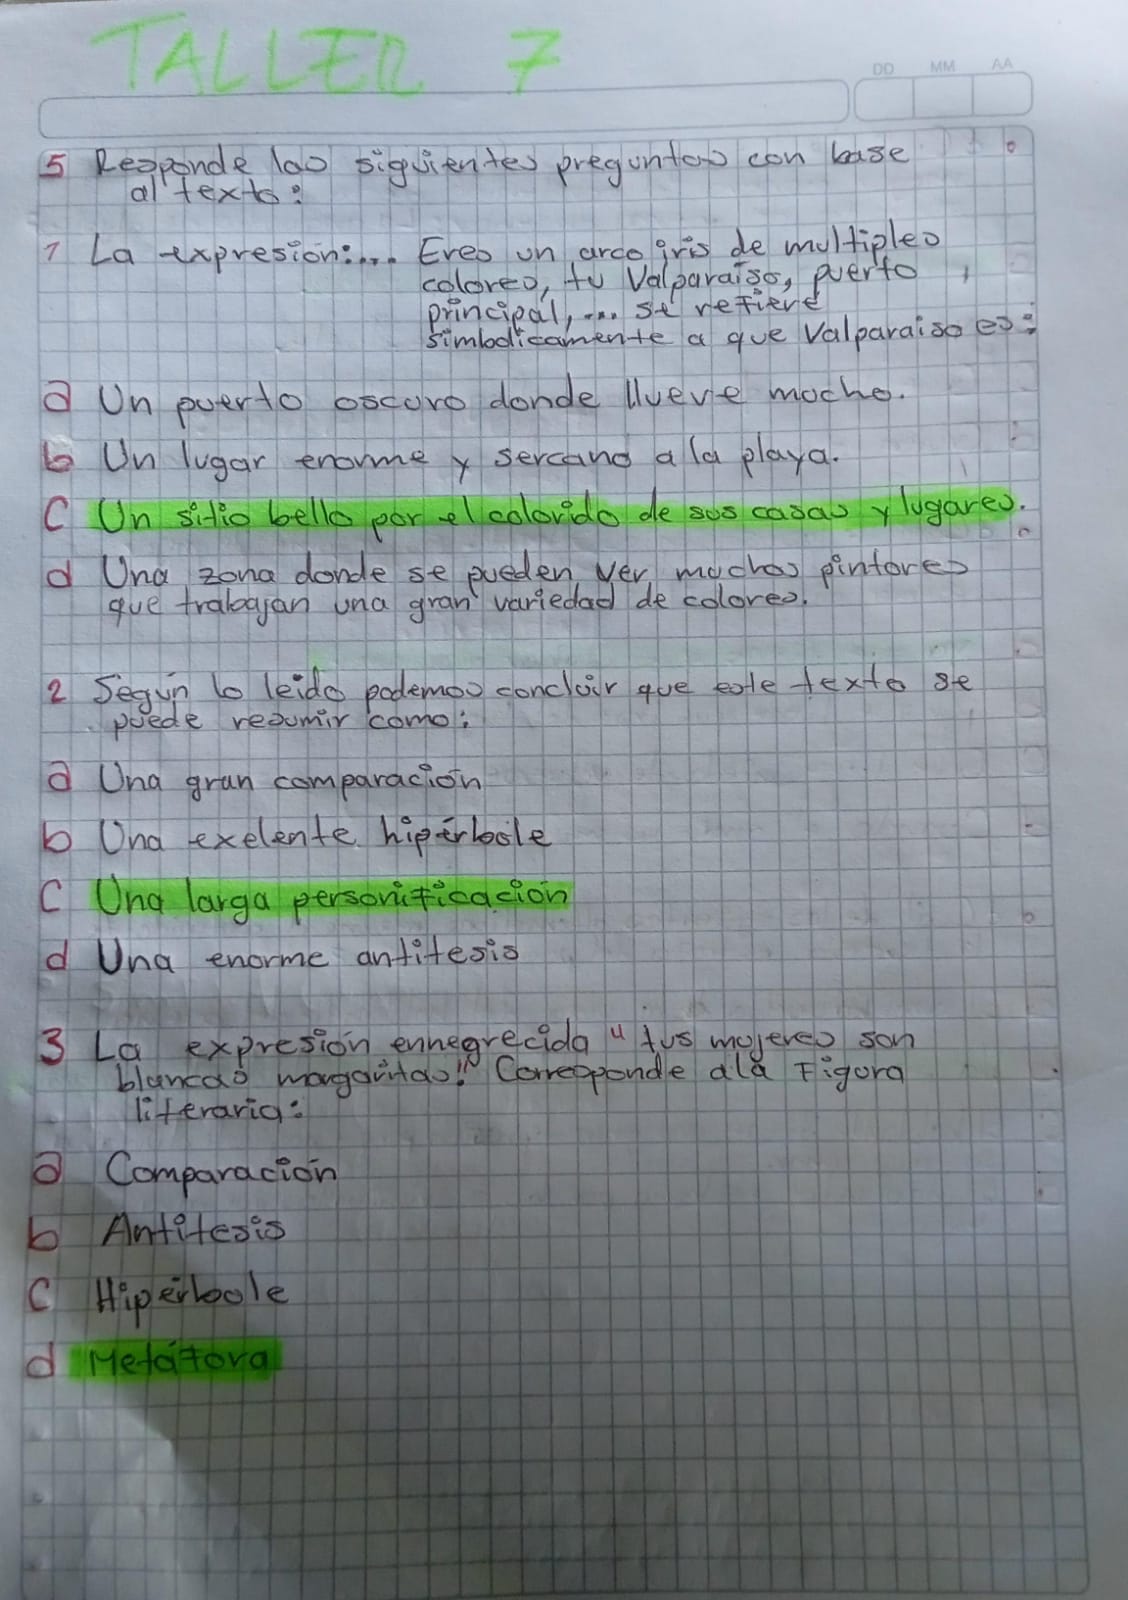 TALLER 7
DD MM AA
5 Responde las siguientes preguntas con base
al texto:
1 La expresión:... Eres un arco iris de multiples
colores, tu Valparaíso, puerto
principal,... se refiere
simbolicamente a que Valparaiso es:
a Un puerto oscuro donde llueve mucho.
b Un lugar enorme y sercano a la playa.
C Un sitio bello por el colorido de sus casas y lugares.
d Una zona donde se pueden ver muchos pintores
que trabajan una gran variedad de colores.
2 Según lo leido podemos concluir que este texto se
puede resumir como:
a Una gran comparación
b Una exelente hipérbole
C Una larga personificación
d Una enorme antitesis
3 La expresión ennegrecida "tus mujeres son
blancas margaritas!" Corresponde a la Figura
literaria:
a Comparación
b Antitesis
C Hipérbole
d Metáfora